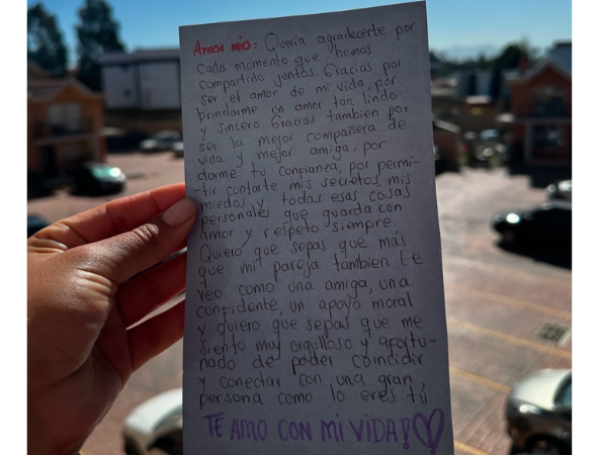 Amor mio: Quería agradecerte por
cada momento que hemos
compartido juntos. Gracias por
ser el amor de mi vida, por
brindarme un amor tan lindo
y sincero Gracias tambien por
ser la mejor compañera de
vida y mejor amiga, por
darme tu confianza, por permi-
tir contarte mis secretos, mis
miedos y todas esas cosas
personales que guarda con
amor y respeto siempre
Quiero que sepas que más
que mi pareja tambien te
veo como una amiga, una
confidente, un apoyo moral
y quiero que sepas que me
siento muy orgulloso y afortu-
nado de poder coincidir
y conectar con una gran
persona como lo eres tú
TE AMO CON MI VIDA!